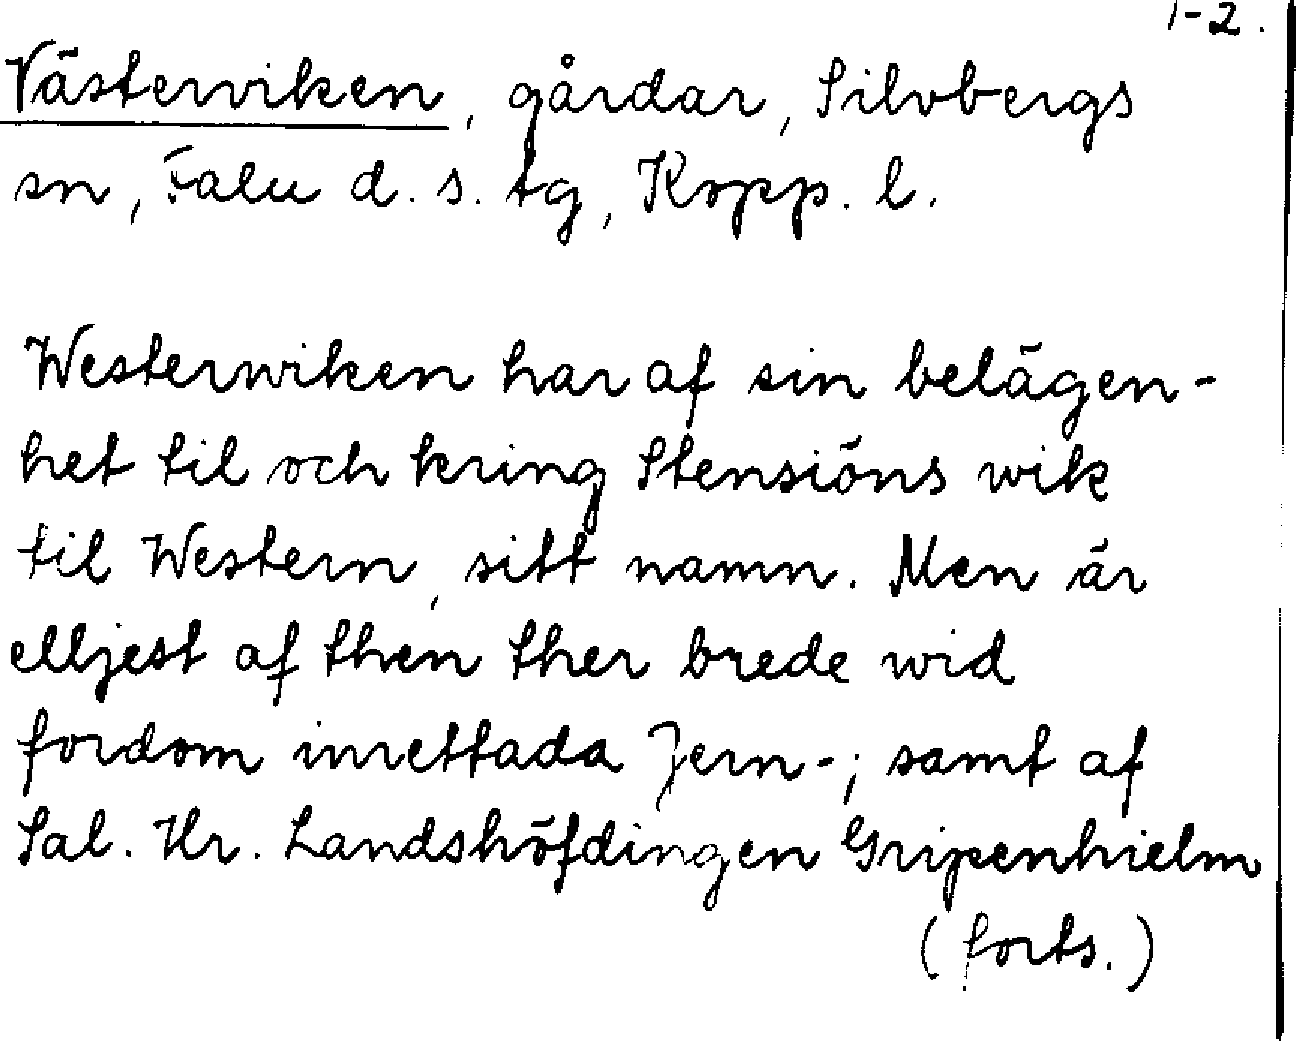 1-2.
Västerviken, gårdar, Silvbergs
sn, Falu d. s. tg, Kopp. l.
Westerwiken har af sin belägen-
het til och kring Stensiöns wik
til Western, sitt namn. Men är
elljest af then ther brede wid
fordom inrettada Jern-; samt af
Sal. Hr. Landshöfdingen Gripenhielm
(forts.)